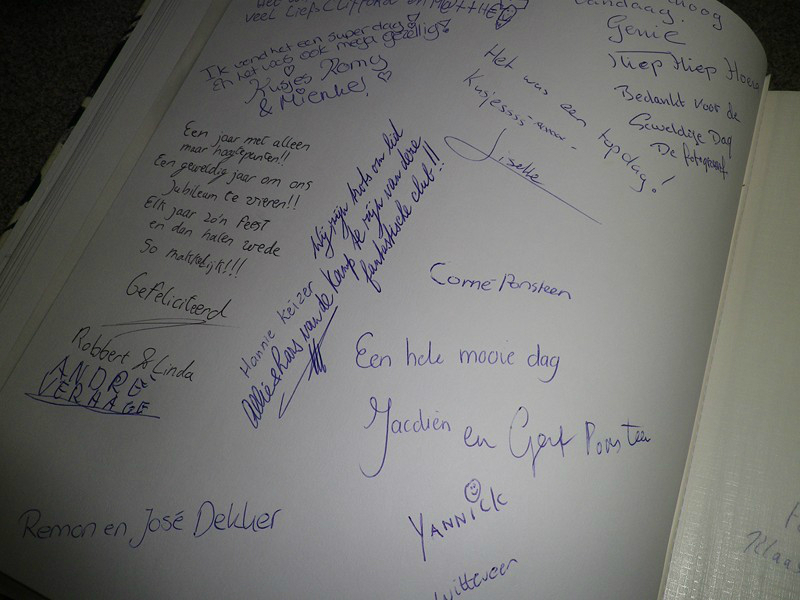 veel liefs Clifford en M@TTHEO
Ik vond het een super dag!
En het was ook mega gezellig!
Kusjes Romy
& Mienke!
Een jaar met alleen
maar hoogtepunten!!
Een geweldig jaar om ons
Jubileum te vieren!!
Elk jaar zo'n feest
en dan halen wede
So makkelijk!!!
Gefeliciteerd
Robbert & Linda
ANDRÉ
VERHAGE
Remon en José Dekker
Wij zijn trots om lid
te zijn van deze
fantastische club!!
Hannie Keizer
Allie & Hans van de Kamp
Het was een topdag!
Kusjessss
Liselle
vandaag.
Genie
Hiep Hiep Hoera
Bedankt voor de
Geweldige Dag
De fotograaf
Corné Ponsteen
Een hele mooie dag
Jacdien en Gert Ponsteen
YANNICK
Witteveen
Klaas